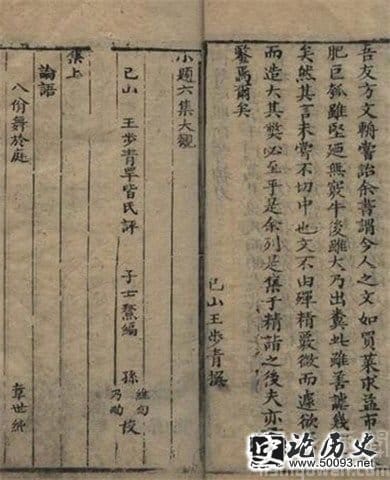 吾友方文輈嘗詒余書謂今人之文如買菜求益市
肥巨瓠雖堅廻無竅牛後雖大乃出糞此雖善謔幾
矣然其言未嘗不切中也文不由殫精嚴微而遽欲
而造大其獘必至乎是余列是集于精詣之後夫亦
鑒焉爾矣
已山王步青撰
小題六集大觀
已山 王步青罕皆氏評 子士鰲編 孫 維甸 乃昀 校
集上
論語
八佾舞於庭
章世純
论历史
www.50093.net